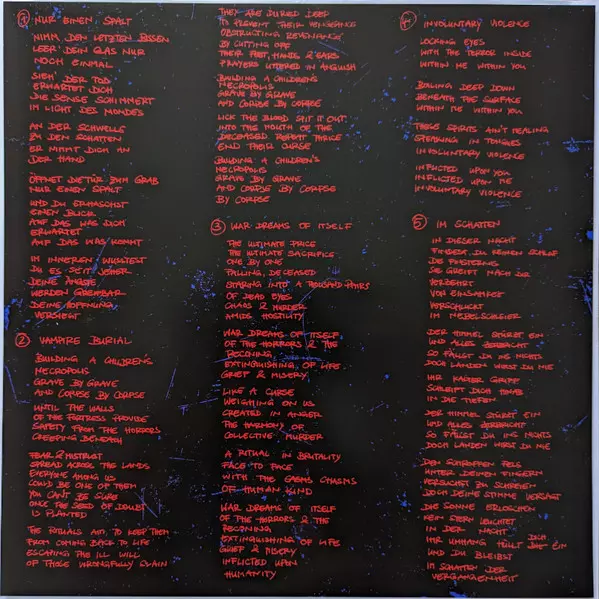 1 NUR EINEN SPALT
NIMM DEN LETZTEN BISSEN
LEER' DEIN GLAS NUR
NOCH EINMAL
SIEH' DER TOD
ERWARTET DICH
DIE SENSE SCHIMMERT
IM LICHT DES MONDES
AN DER SCHWELLE
ZU DEN SCHATTEN
ER NIMMT DICH AN
DER HAND
ÖFFNET DIE TÜR ZUM GRAB
NUR EINEN SPALT
UND DU ERHASCHST
EINEN BLICK
AUF DAS WAS DICH
ERWARTET
AUF DAS WAS KOMMT
IM INNEREN WUSSTEST
DU ES SEIT JEHER
DEINE ÄNGSTE
WERDEN GREIFBAR
DEINE HOFFNUNG
VERSIEGT
2 VAMPIRE BURIAL
BUILDING A CHILDREN'S
NECROPOLIS
GRAVE BY GRAVE
AND CORPSE BY CORPSE
UNTIL THE WALLS
OF THE FORTRESS PROVIDE
SAFETY FROM THE HORRORS
CREEPING BENEATH
FEAR & MISTRUST
SPREAD ACROSS THE LANDS
EVERYONE AMONG US
COULD BE ONE OF THEM
YOU CAN'T BE SURE
ONCE THE SEED OF DOUBT
IS PLANTED
THE RITUALS AIM TO KEEP THEM
FROM COMING BACK TO LIFE
ESCAPING THE ILL WILL
OF THOSE WRONGFULLY SLAIN
THEY ARE BURIED DEEP
TO PREVENT THEIR VENGEANCE
OBSTRUCTING REVENANCE
BY CUTTING OFF
THEIR FEET, HANDS & EARS
PRAYERS UTTERED IN ANGUISH
BUILDING A CHILDREN'S
NECROPOLIS
GRAVE BY GRAVE
AND CORPSE BY CORPSE
LICK THE BLOOD SPIT IT OUT
INTO THE MOUTH OF THE
DECEASED REPEAT THRICE
END THEIR CURSE
BUILDING A CHILDREN'S
NECROPOLIS
GRAVE BY GRAVE
AND CORPSE BY CORPSE
BY CORPSE
3 WAR DREAMS OF ITSELF
THE ULTIMATE PRICE
THE ULTIMATE SACRIFICE
ONE BY ONE
FALLING, DECEASED
STARING INTO A THOUSAND PAIRS
OF DEAD EYES
CHAOS & MURDER
AMIDS HOSTILITY
WAR DREAMS OF ITSELF
OF THE HORRORS & THE
BECOMING
EXTINGUISHING OF LIFE
GRIEF & MISERY
LIKE A CURSE
WEIGHING ON US
CREATED IN ANGER
THE HARMONY OF
COLLECTIVE MURDER
A RITUAL IN BRUTALITY
FACE TO FACE
WITH THE CHASMS
OF HUMAN KIND
WAR DREAMS OF ITSELF
OF THE HORRORS & THE
BECOMING
EXTINGUISHING OF LIFE
GRIEF & MISERY
INFLICTED UPON
HUMANITY
4 INVOLUNTARY VIOLENCE
LOCKING EYES
WITH THE TERROR INSIDE
WITHIN ME WITHIN YOU
BOILING DEEP DOWN
BENEATH THE SURFACE
WITHIN ME WITHIN YOU
THESE SPIRITS AIN'T HEALING
SPEAKING IN TONGUES
INVOLUNTARY VIOLENCE
INFLICTED UPON YOU
INFLICTED UPON ME
INVOLUNTARY VIOLENCE
5 IM SCHATTEN
IN DIESER NACHT
FINDEST DU KEINEN SCHLAF
DIE FINSTERNIS
SIE GREIFT NACH DIR
VERZEHRT
VON EINSAMKEIT
VERSCHLUCKT
IM NEBELSCHLEIER
DER HIMMEL STÜRZT EIN
UND ALLES ZERBRICHT
SO FÄLLST DU INS NICHTS
DOCH LANDEN WIRST DU NIE
IHR KALTER GRIFF
SCHLEIFT DICH HINAB
IN DIE TIEFEN
DER HIMMEL STÜRZT EIN
UND ALLES ZERBRICHT
SO FÄLLST DU INS NICHTS
DOCH LANDEN WIRST DU NIE
DEN SCHROFFEN FELS
UNTER DEINEN FINGERN
VERSUCHST ZU SCHREIEN
DOCH DEINE STIMME VERSAGT
DIE SONNE ERLOSCHEN
KEIN STERN LEUCHTET
IN DER NACHT
IHR UMHANG HÜLLT DICH EIN
UND DU BLEIBST
IM SCHATTEN DER
VERGANGENHEIT